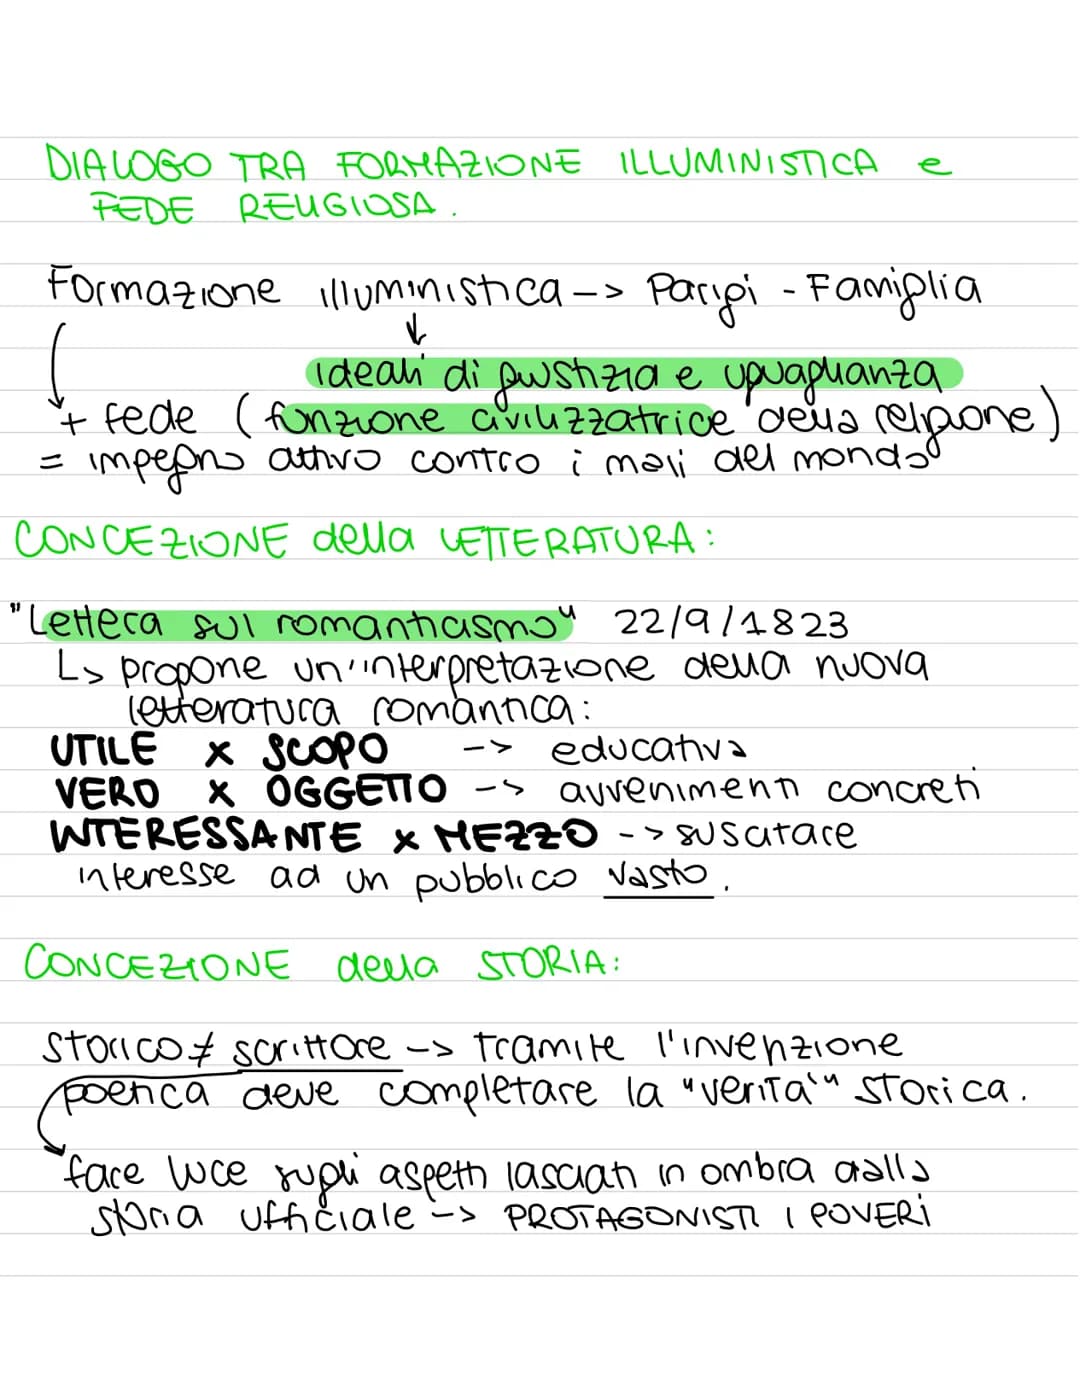 DIALOGO TRA FORMAZIONE ILLUMINISTICA e
FEDE RELIGIOSA.
Formazione illuministica –> Parigi - Famiglia
↓
ideali di giustizia e uguaglianza
+ fede (funzione civilizzatrice della religione)
= impegno attivo contro i mali del mondo
CONCEZIONE della LETTERATURA:
"Lettera sul romanticismo" 22/9/1823
↳ propone un'interpretazione della nuova
letteratura romantica:
UTILE x SCOPO --> educativa
VERO x OGGETTO --> avvenimenti concreti
INTERESSANTE x MEZZO --> suscitare
interesse ad un pubblico vasto.
CONCEZIONE della STORIA:
STORICO ≠ scrittore --> tramite l'invenzione
poetica deve completare la "verità" storica.
face luce sugli aspetti lasciati in ombra dalla
storia ufficiale --> PROTAGONISTI I POVERI